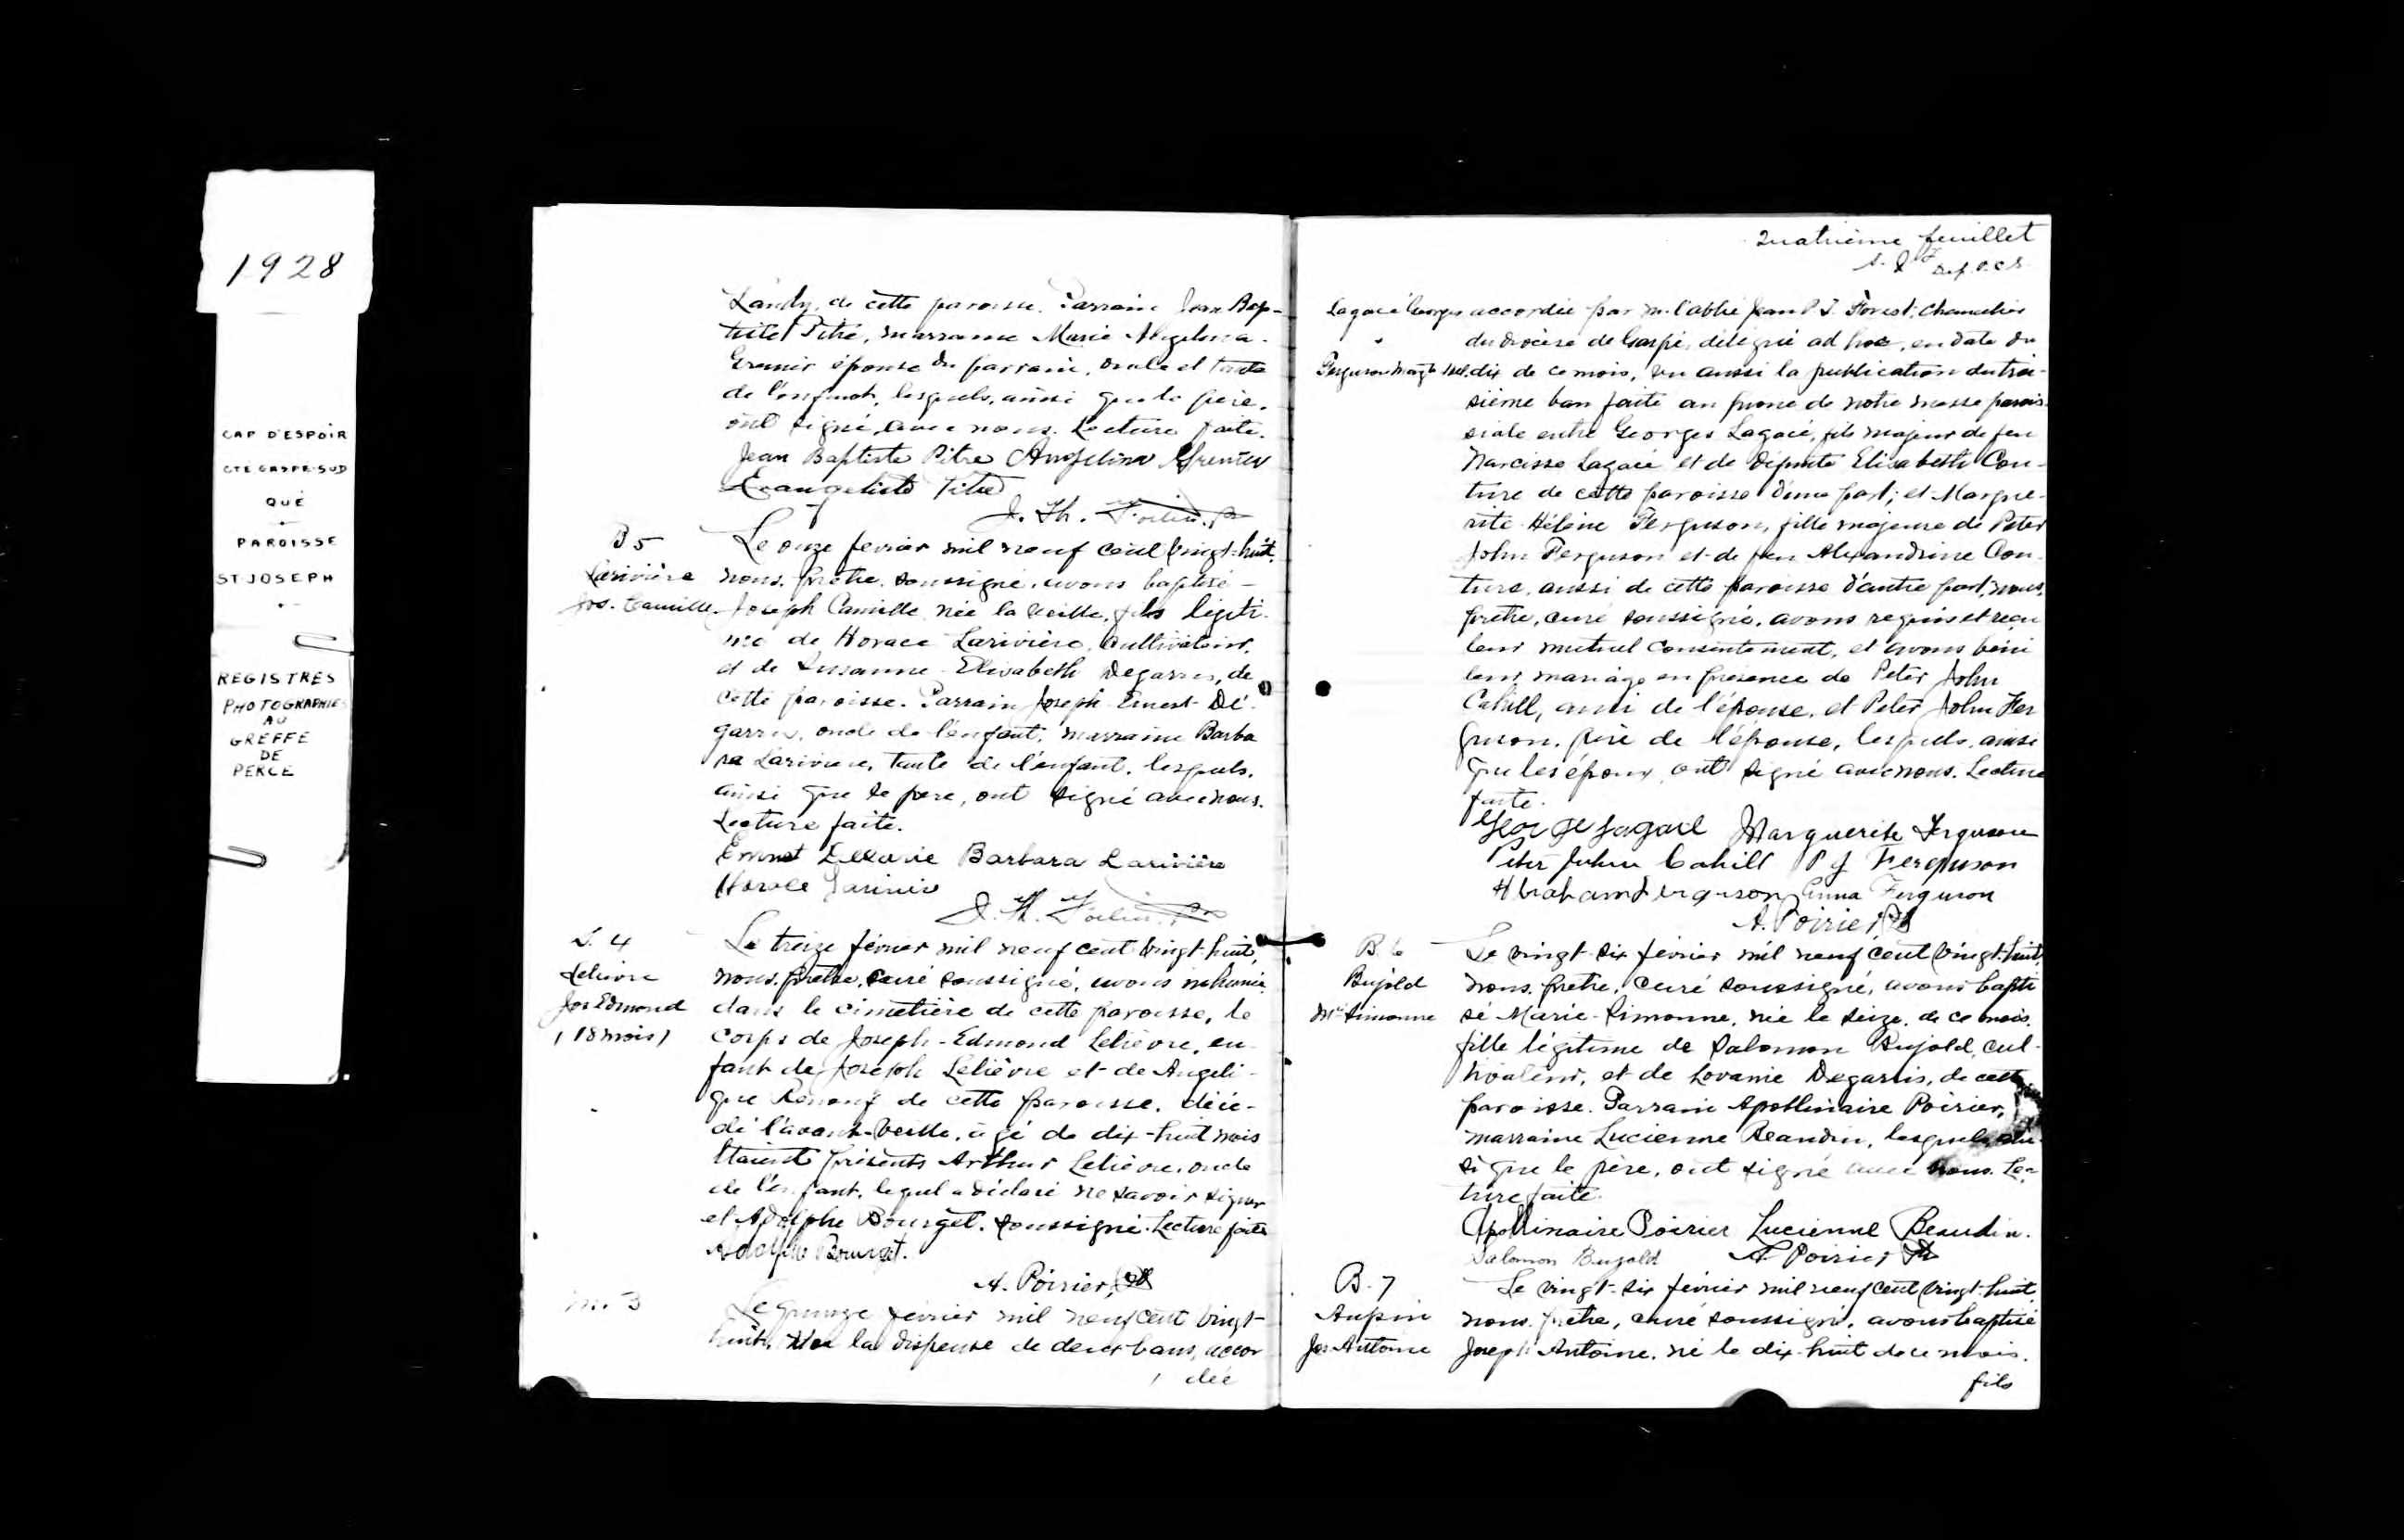 1928
CAP D'ESPOIR
CTÉ GASPE-SUD
QUÉ
PAROISSE
ST JOSEPH
REGISTRES
PHOTOGRAPHIES
AU
GREFFE
DE
PERCE
Landry, de cette paroisse. Parrain Jean Bap-
tiste Pitre, marraine Marie Angelina
Grenier épouse du parrain, oncle et tante
de l'enfant, lesquels, ainsi que le père,
ont signé avec nous. Lecture faite.
Jean Baptiste Pitre Angelina Grenier
Evangeliste Pitre
J. Th.
B 5
Larivière
Jos. Camille
Le onze fevrier mil neuf cent vingt-huit,
nous, prêtre, soussigné, avons baptisé
Joseph Camille, née la veille, fils légiti-
me de Horace Larivière, cultivateur,
et de Susanne-Elisabeth Degarris, de
cette paroisse. Parrain Joseph-Ernest Dé-
garris, oncle de l'enfant, marraine Barba
ra Larivière, tante de l'enfant, lesquels,
ainsi que le père, ont signé avec nous.
Lecture faite.
Ernest Barbara Larivière
Horace Larivière
J. Th.
S. 4
Lelièvre
Jos Edmond
(18 mois)
Le treize février mil neuf cent vingt-huit,
nous, prêtre, curé soussigné, avons inhumé
dans le cimetière de cette paroisse, le
corps de Joseph-Edmond Lelièvre, en-
fant de Joseph Lelièvre et de Angéli-
que Renouf de cette paroisse, décé-
dé l'avant-veille, agé de dix-huit mois
Etaient présents Arthur Lelièvre, oncle
de l'enfant, lequel a déclaré ne savoir signer
et Adolphe Bourget, soussigné. Lecture faite
Adolphe Bourget.
A. Poirier, Ptr
M. 3
Le quinze février mil neuf cent vingt-
huit, vu la dispense de deux bans, accor
dée
Quatrième feuillet
Dep. P.C.S.
Lagacé Georges
Ferguson Margte Hel.
accordée par M. l'abbé Jean Forest, chancelier
du diocèse de Gaspé, délégué ad hoc, en date du
dix de ce mois, vu aussi la publication du troi-
sième ban faite au prone de notre messe parois-
siale entre Georges Lagacé, fils majeur de feu
Narcisse Lagacé et de défunte Elisabeth Cou-
ture de cette paroisse d'une part; et Margue-
rite-Hélène Ferguson, fille majeure de Peter
John Ferguson et de feu Alexandrine Cou-
ture, aussi de cette paroisse d'autre part, nous,
prêtre, curé soussigné, avons requis et reçu
leur mutuel consentement, et avons béni
leur mariage en présence de Peter John
Cahill, ami de l'épouse, et Peter John Fer
guson, père de l'épouse, lesquels, ainsi
que les époux, ont signé avec nous. Lecture
faite.
George Lagacé Marguerite Ferguson
Peter John Cahill P J Ferguson
Abraham Ferguson Anna Ferguson
A. Poirier, Ptr
B. 6
Bujold
Mie Simonne
Le vingt-six février mil neuf cent vingt-huit,
nous, prêtre, curé soussigné, avons bapti
sé Marie-Simonne, née le seize de ce mois,
fille légitime de Salomon Bujold, cul-
tivateur, et de Lovanie Degarris, de cette
paroisse. Parrain Apollinaire Poirier,
marraine Lucienne Beaudin, lesquels ain-
si que le père, ont signé avec nous. Lec-
ture faite.
Apollinaire Poirier Lucienne Beaudin.
Salomon Bujold A. Poirier Ptr
B. 7
Aupin
Jos Antoine
Le vingt-six février mil neuf cent vingt-huit,
nous, prêtre, curé soussigné, avons baptisé
Joseph Antoine, né le dix-huit de ce mois,
fils